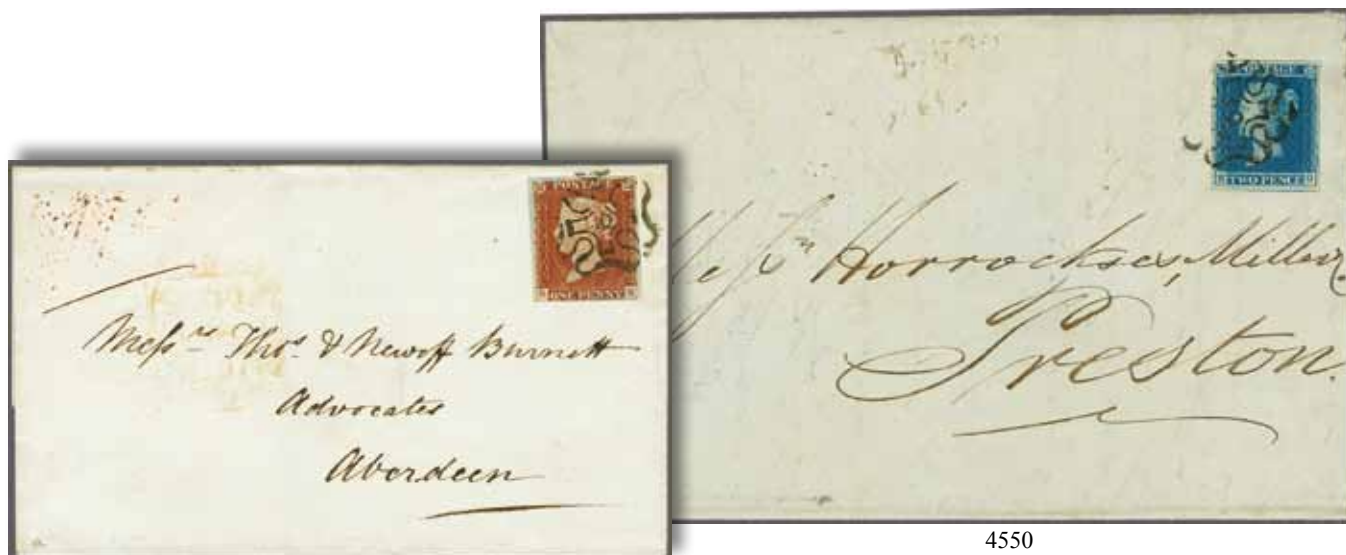 POSTAGE
ONE PENNY
Messrs. Thos. & Newell Burnett
Advocates
Aberdeen
POSTAGE
TWO PENCE
Messrs Horrockses, Miller
Preston.
4550